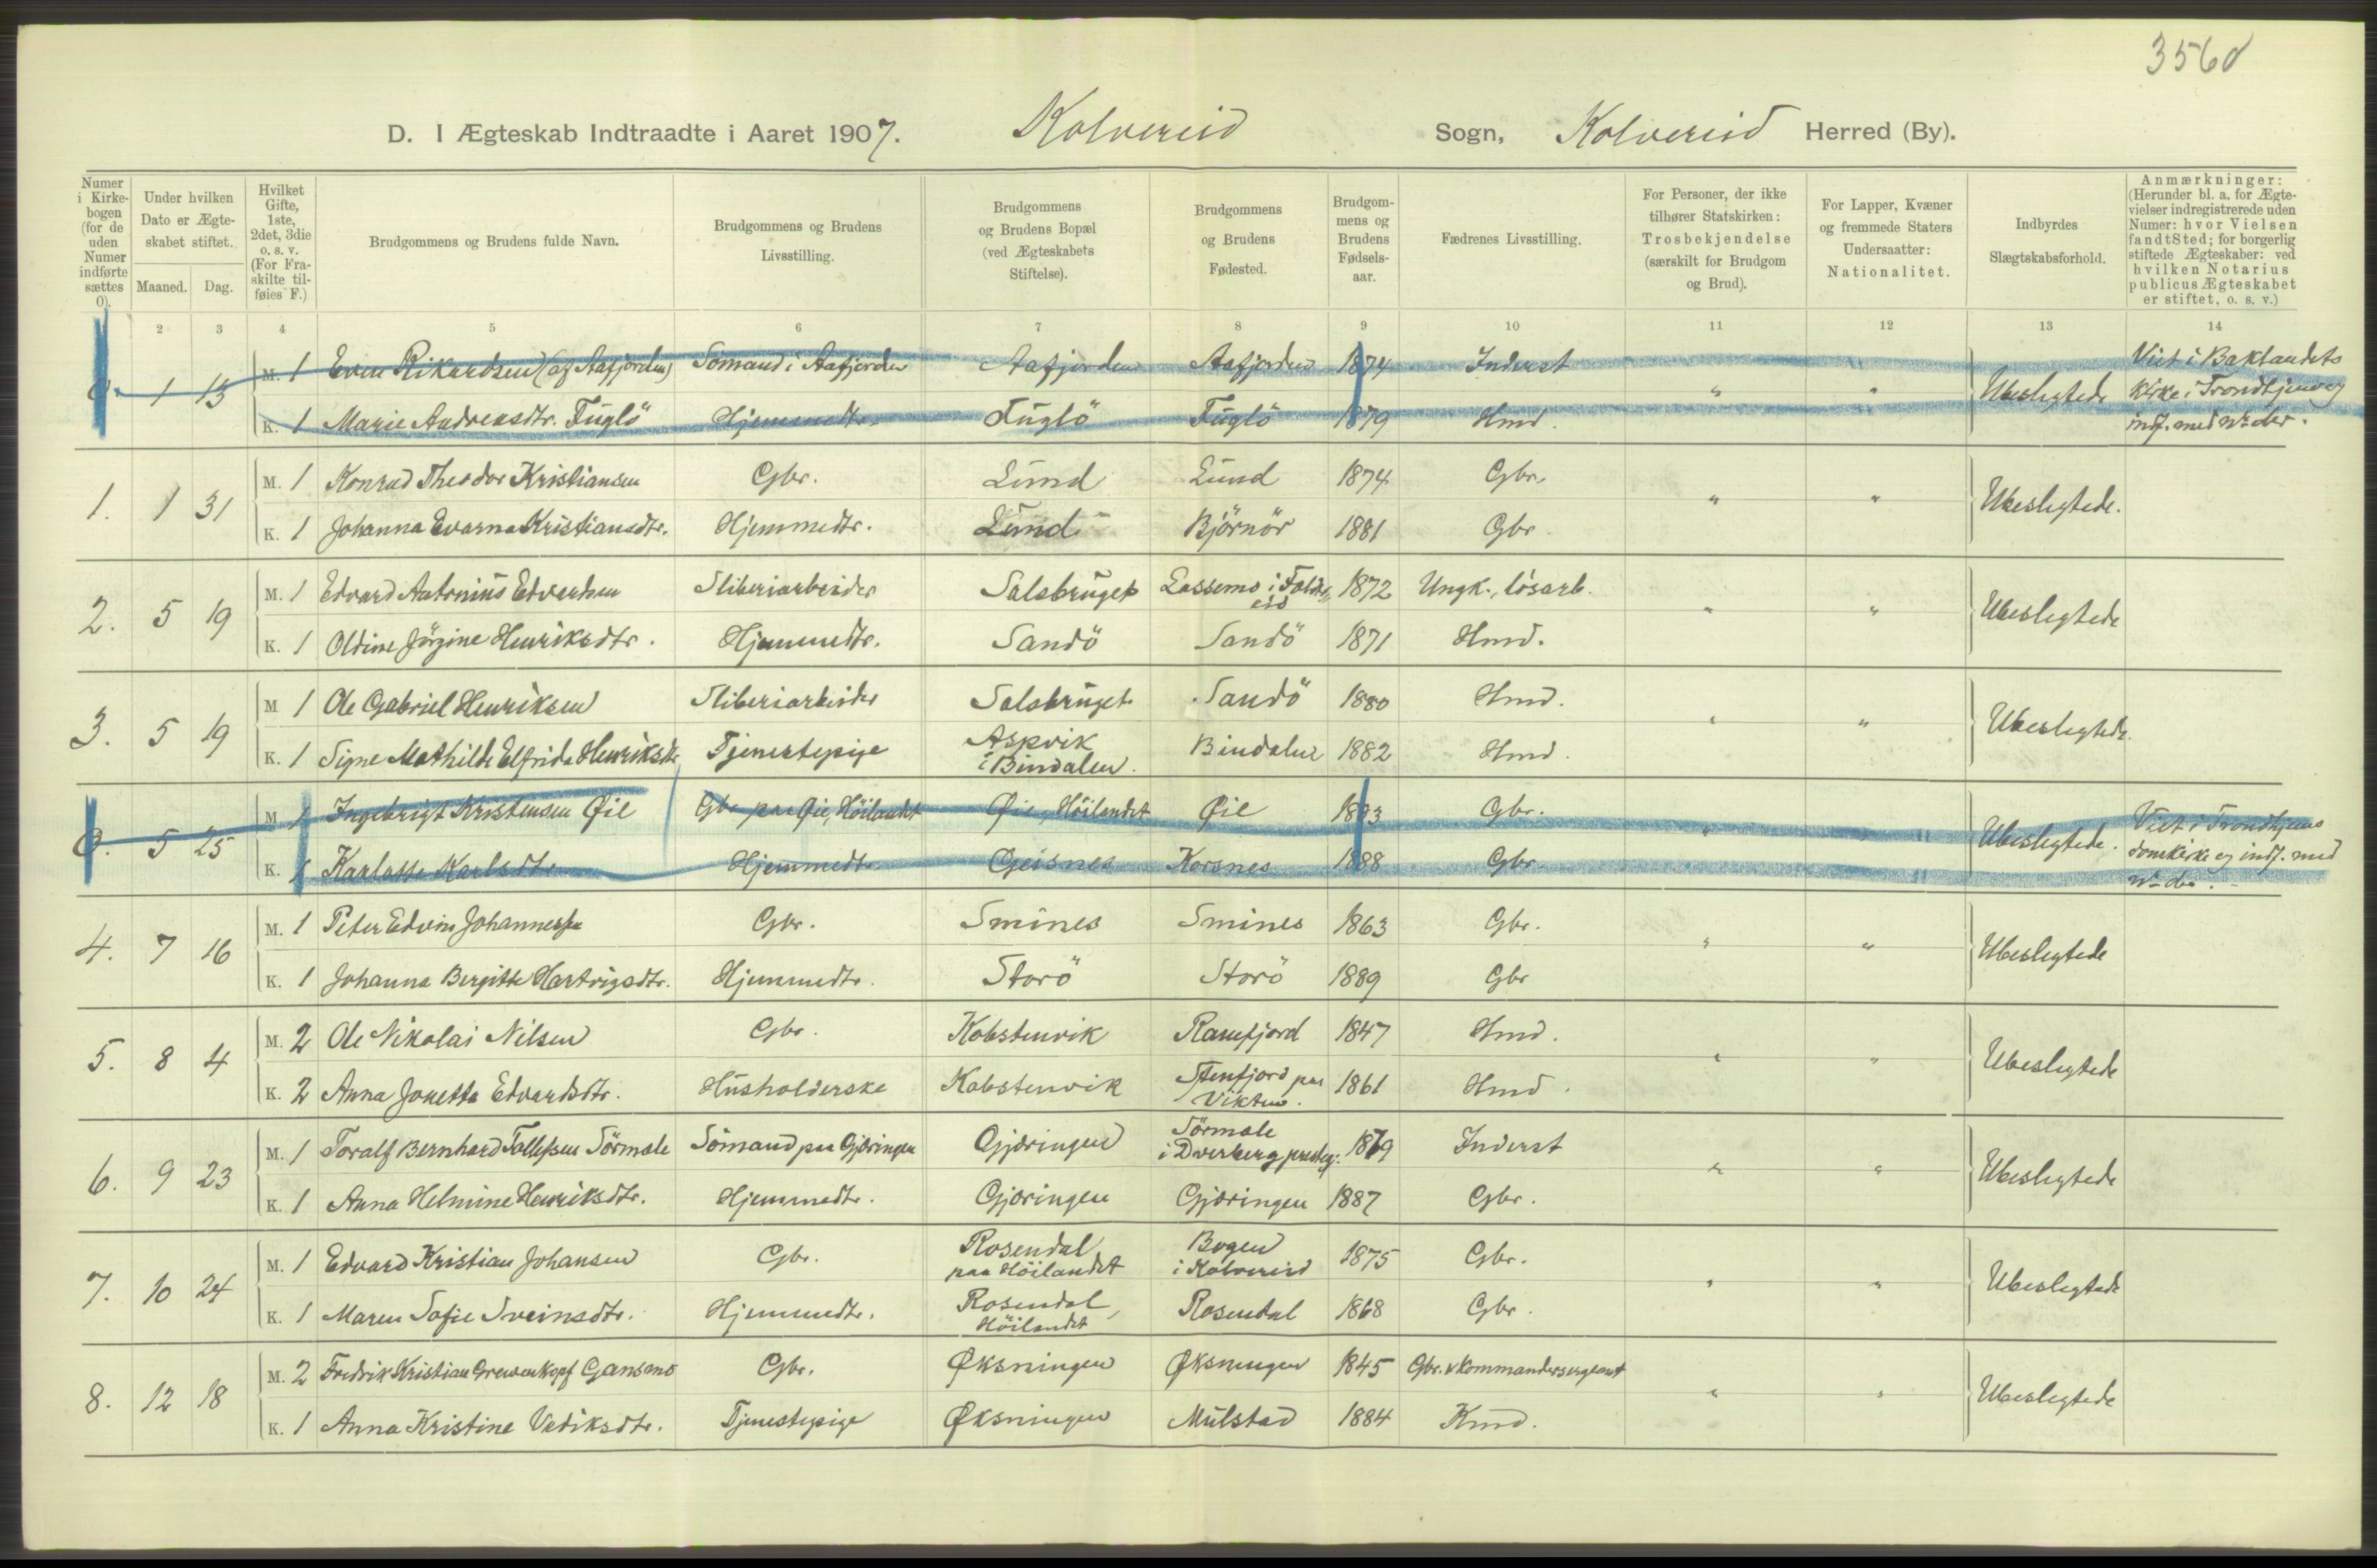 3560
D. I Ægteskab Indtraadte i Aaret 1907. Kolvereid Sogn, Kolvereid Herred (By).
Numer i Kirkebogen (for de uden Numer indførte sættes 0).
Under hvilken Dato er Ægteskabet stiftet. Maaned. Dag.
Hvilket Gifte, 1ste, 2det, 3die o. s. v. (For Fraskilte tilføies F.)
Brudgommens og Brudens fulde Navn.
Brudgommens og Brudens Livsstilling.
Brudgommens og Brudens Bopæl (ved Ægteskabets Stiftelse).
Brudgommens og Brudens Fødested.
Brudgommens og Brudens Fødselsaar.
Fædrenes Livsstilling.
For Personer, der ikke tilhører Statskirken: Trosbekjendelse (særskilt for Brudgom og Brud).
For Lapper, Kvæner og fremmede Staters Undersaatter: Nationalitet.
Indbyrdes Slægtskabsforhold.
Anmærkninger: (Herunder bl. a. for Ægtevielser indregistrerede uden Numer: hvor Vielsen fandt Sted; for borgerlig stiftede Ægteskaber: ved hvilken Notarius publicus Ægteskabet er stiftet, o. s. v.)
2 3 4 5 6 7 8 9 10 11 12 13 14
0. 1 13 M. 1 Even Rikardsen (af Aafjorden) Sømand i Aafjorden Aafjorden Aafjorden 1874 Inderst " " Ubeslegtede Viet i Baklandets Kirke i Trondhjem og indf. med No der.
K. 1 Marie Andreasdtr. Fuglö Hjemmedtr. Fuglö Fuglö 1879 Hmd.
1. 1 31 M. 1 Konrad Theodor Kristiansen Gbr. Lund Lund 1874 Gbr. " " Ubeslegtede.
K. 1 Johanna Evarna Kristiansdtr. Hjemmedtr. Lund Björnör 1881 Gbr.
2. 5 19 M. 1 Edvard Antonius Edvardsen Sliberiarbeider Salsbruget Lassemo i Foldereid 1872 Ungk., løsarb. " " Ubeslegtede
K. 1 Oldine Jörgine Henriksdtr. Hjemmedtr. Sandö Sandö 1871 Hmd.
3. 5 19 M 1 Ole Gabriel Henriksen Sliberiarbeider Salsbruget Sandö 1880 Hmd. " " Ubeslegtede.
K. 1 Signe Mathilde Elfrida Henriksdtr Tjenestepige Aspvik i Bindalen. Bindalen 1882 Hmd.
0. 5 25 M 1 Ingebrigt Kristensen Øie Gbr paa Øie, Höilandet Øie, Höilandet Øie 1883 Gbr. " " Ubeslegtede. Viet i Trondhjems domkirke og indf. med No der.
K. 1 Karlotte Karlsdtr. Hjemmedtr. Geisnes Korsnes 1888 Gbr.
4. 7 16 M. 1 Peter Edvin Johannessen Gbr. Smines Smines 1863 Gbr. " " Ubeslegtede
K. 1 Johanna Bergitte Hartvigsdtr. Hjemmedtr. Storö Storö 1889 Gbr
5. 8 4 M. 2 Ole Nikolai Nilsen Gbr. Kobstenvik Ranfjord 1847 Hmd. " " Ubeslegtede
K. 2 Anna Jonetta Edvardsdtr. Husholderske Kobstenvik Stenfjord paa Vikten. 1861 Hmd.
6. 9 23 M. 1 Toralf Bernhard Tollefsen Sörmole Sömand paa Gjæringen Gjæringen Sörmole i Dverberg prestegj. 1879 Inderst " " Ubeslegtede
K. 1 Anna Helmine Henriksdtr. Hjemmedtr. Gjæringen Gjæringen 1887 Gbr.
7. 10 24 M. 1 Edvard Kristian Johansen Gbr. Rosendal paa Höilandet Bogen i Kolvereid 1875 Gbr. " " Ubeslegtede
K. 1 Maren Sofie Sveinsdtr. Hjemmedtr. Rosendal, Höilandet Rosendal 1868 Gbr.
8. 12 18 M. 2 Fredrik Kristian Grewenkopf Gansmo Gbr. Øksningen Øksningen 1845 Gbr. & Kommandersergeant " " Ubeslegtede
K. 1 Anna Kristine Vediksdtr. Tjenestepige Øksningen Mulstad 1884 Kmd.